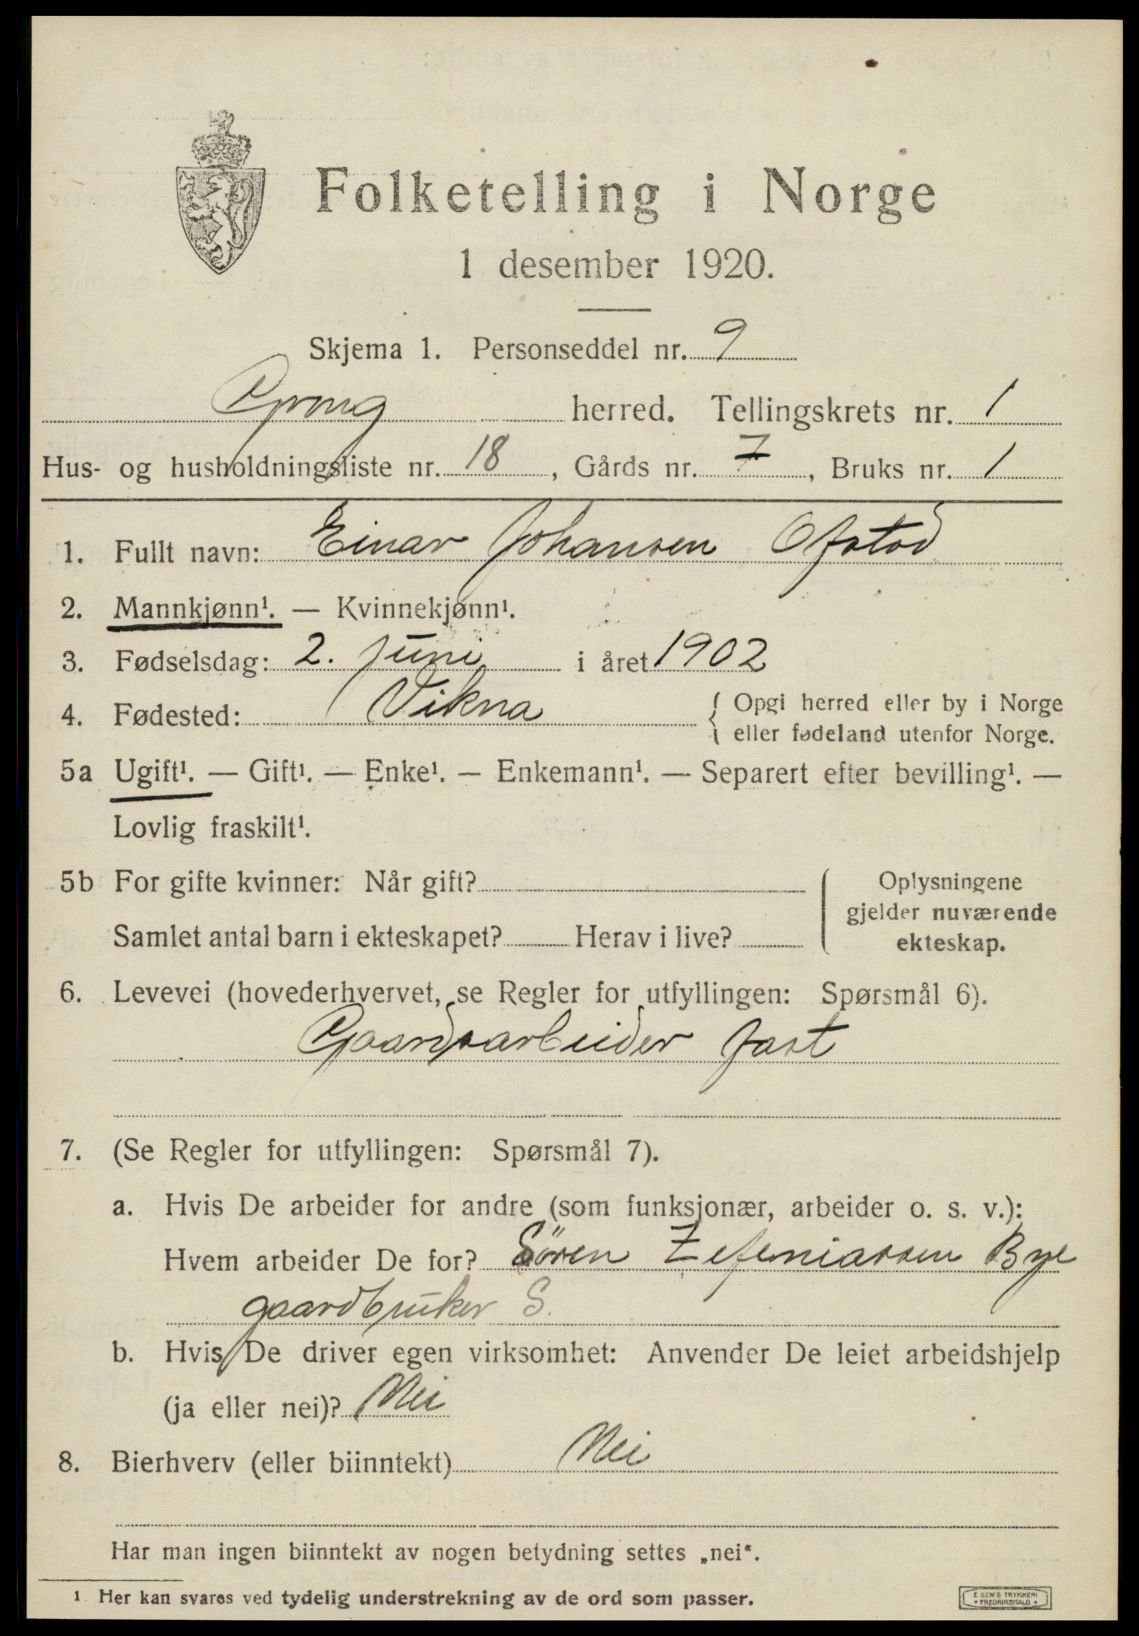 Folketelling i Norge
1 desember 1920.
Skjema 1. Personseddel nr. 9
Grong herred. Tellingskrets nr. 1
Hus- og husholdningsliste nr. 18, Gårds nr. 7, Bruks nr. 1
1. Fullt navn: Einar Johansen Ofstad
2. Mannkjønn¹. — Kvinnekjønn¹.
3. Fødselsdag: 2. juni i året 1902
4. Fødested: Vikna { Opgi herred eller by i Norge
eller fødeland utenfor Norge.
5a Ugift¹. — Gift¹. — Enke¹. — Enkemann¹. — Separert efter bevilling¹. —
Lovlig fraskilt¹.
5b For gifte kvinner: Når gift?
Samlet antal barn i ekteskapet? Herav i live?
{ Oplysningene
gjelder nuværende
ekteskap.
6. Levevei (hovederhvervet, se Regler for utfyllingen: Spørsmål 6).
Gaardsarbeider fast
7. (Se Regler for utfyllingen: Spørsmål 7).
a. Hvis De arbeider for andre (som funksjonær, arbeider o. s. v.):
Hvem arbeider De for? Sören Zefeniassen Bye
gaardbruker S.
b. Hvis De driver egen virksomhet: Anvender De leiet arbeidshjelp
(ja eller nei)? Nei
8. Bierhverv (eller biinntekt) Nei
Har man ingen biinntekt av nogen betydning settes „nei“.
¹ Her kan svares ved tydelig understrekning av de ord som passer.
E. SEM'S TRYKKERI
• FREDRIKSHALD •